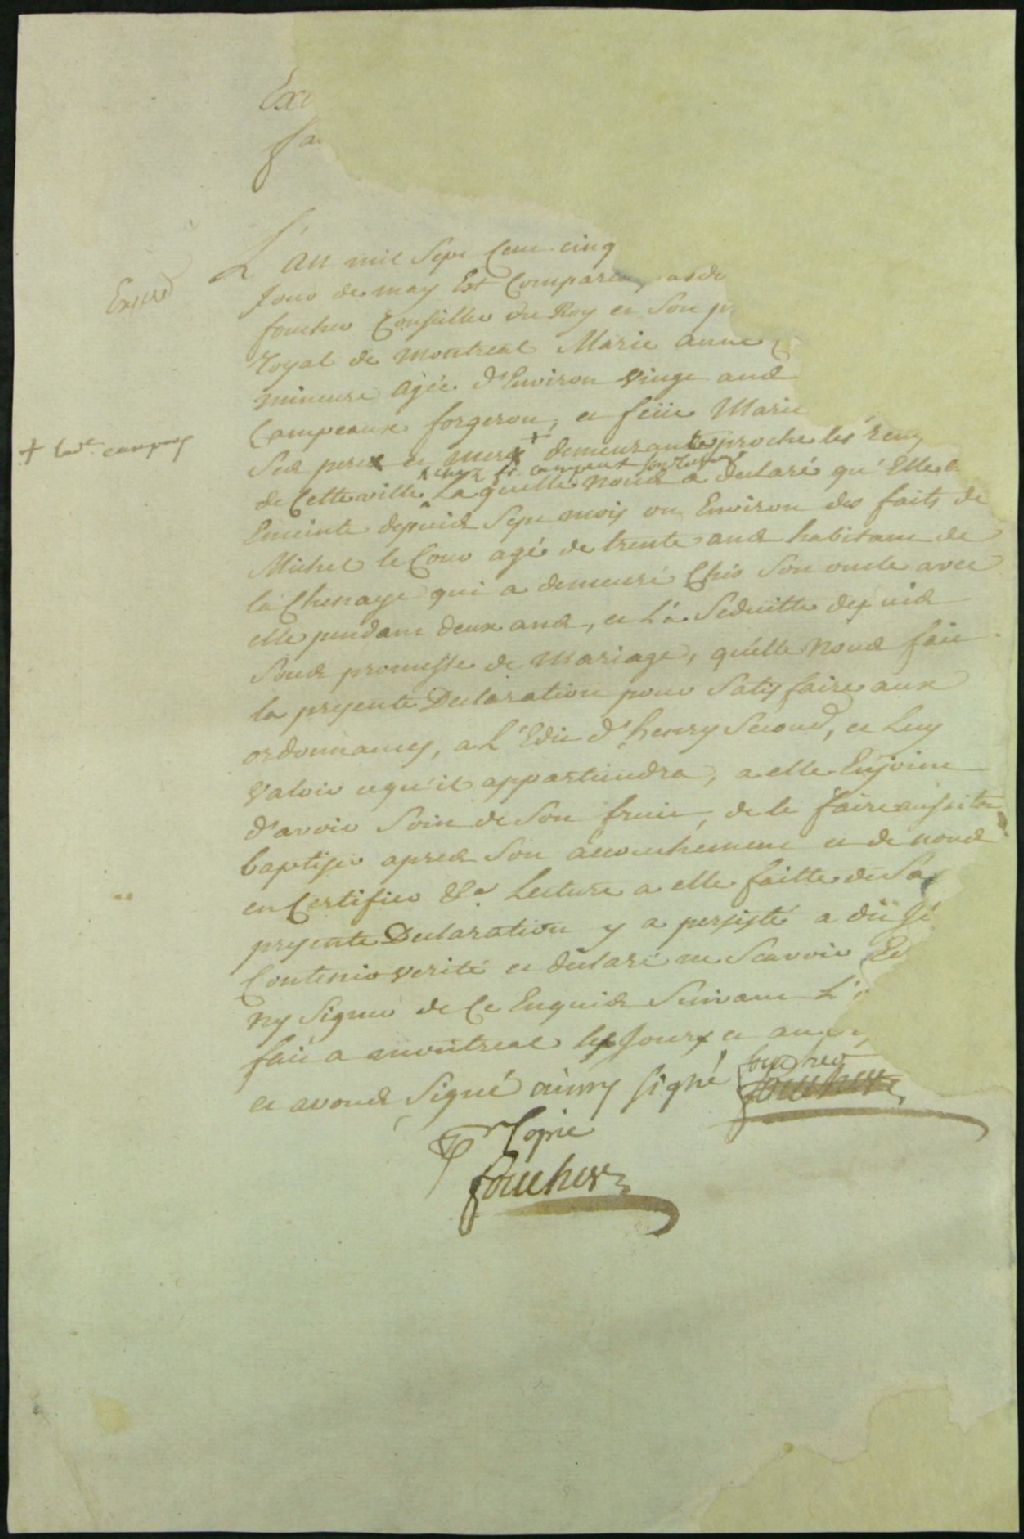 Ex
fa
L'an mil Sept Cent cinq
Expedié
Jour de may Est Comparu pard
foucher Conseiller du Roy et Son pr
Royal de Montreal Marie anne
mineure agée d'Environ vingt ans
Campeaux forgeron, et feüe Marie
+
+ lad.e campeau
Ses pere et mere demeurante proche les recu
chez Campeau son
de Cette ville, Laquelle Nous a declaré qu'Elle e
Enceinte depuis Sept mois ou Environ des faits de
Michel le Cour agé de trente ans habitant de
la Chenaye qui a demeuré Chés Son oncle avec
elle pendant deux ans, et L'a Seduitte depuis
Sous promesse de Mariage, qu'elle Nous fait
la presente Declaration pour Satisfaire aux
ordonnances, a L'Edit d'henry Second, et Luy
Valoir cequ'il appartiendra, a elle Enjoint
d'avoir Soin de Son fruit, de le faire aussitost
baptiser apres Son accouchement et de nous
en Certifier &a Lecture a elle faitte de Sa
presente Declaration y a persisté a dit ye
Contenir verité et declaré ne Scavoir Ec
ny Signer de Ce Enquise Suivant L'
fait a montreal les Jour et an
et avons Signé ainsy signé foucher
foucher
Pr Copie
foucher